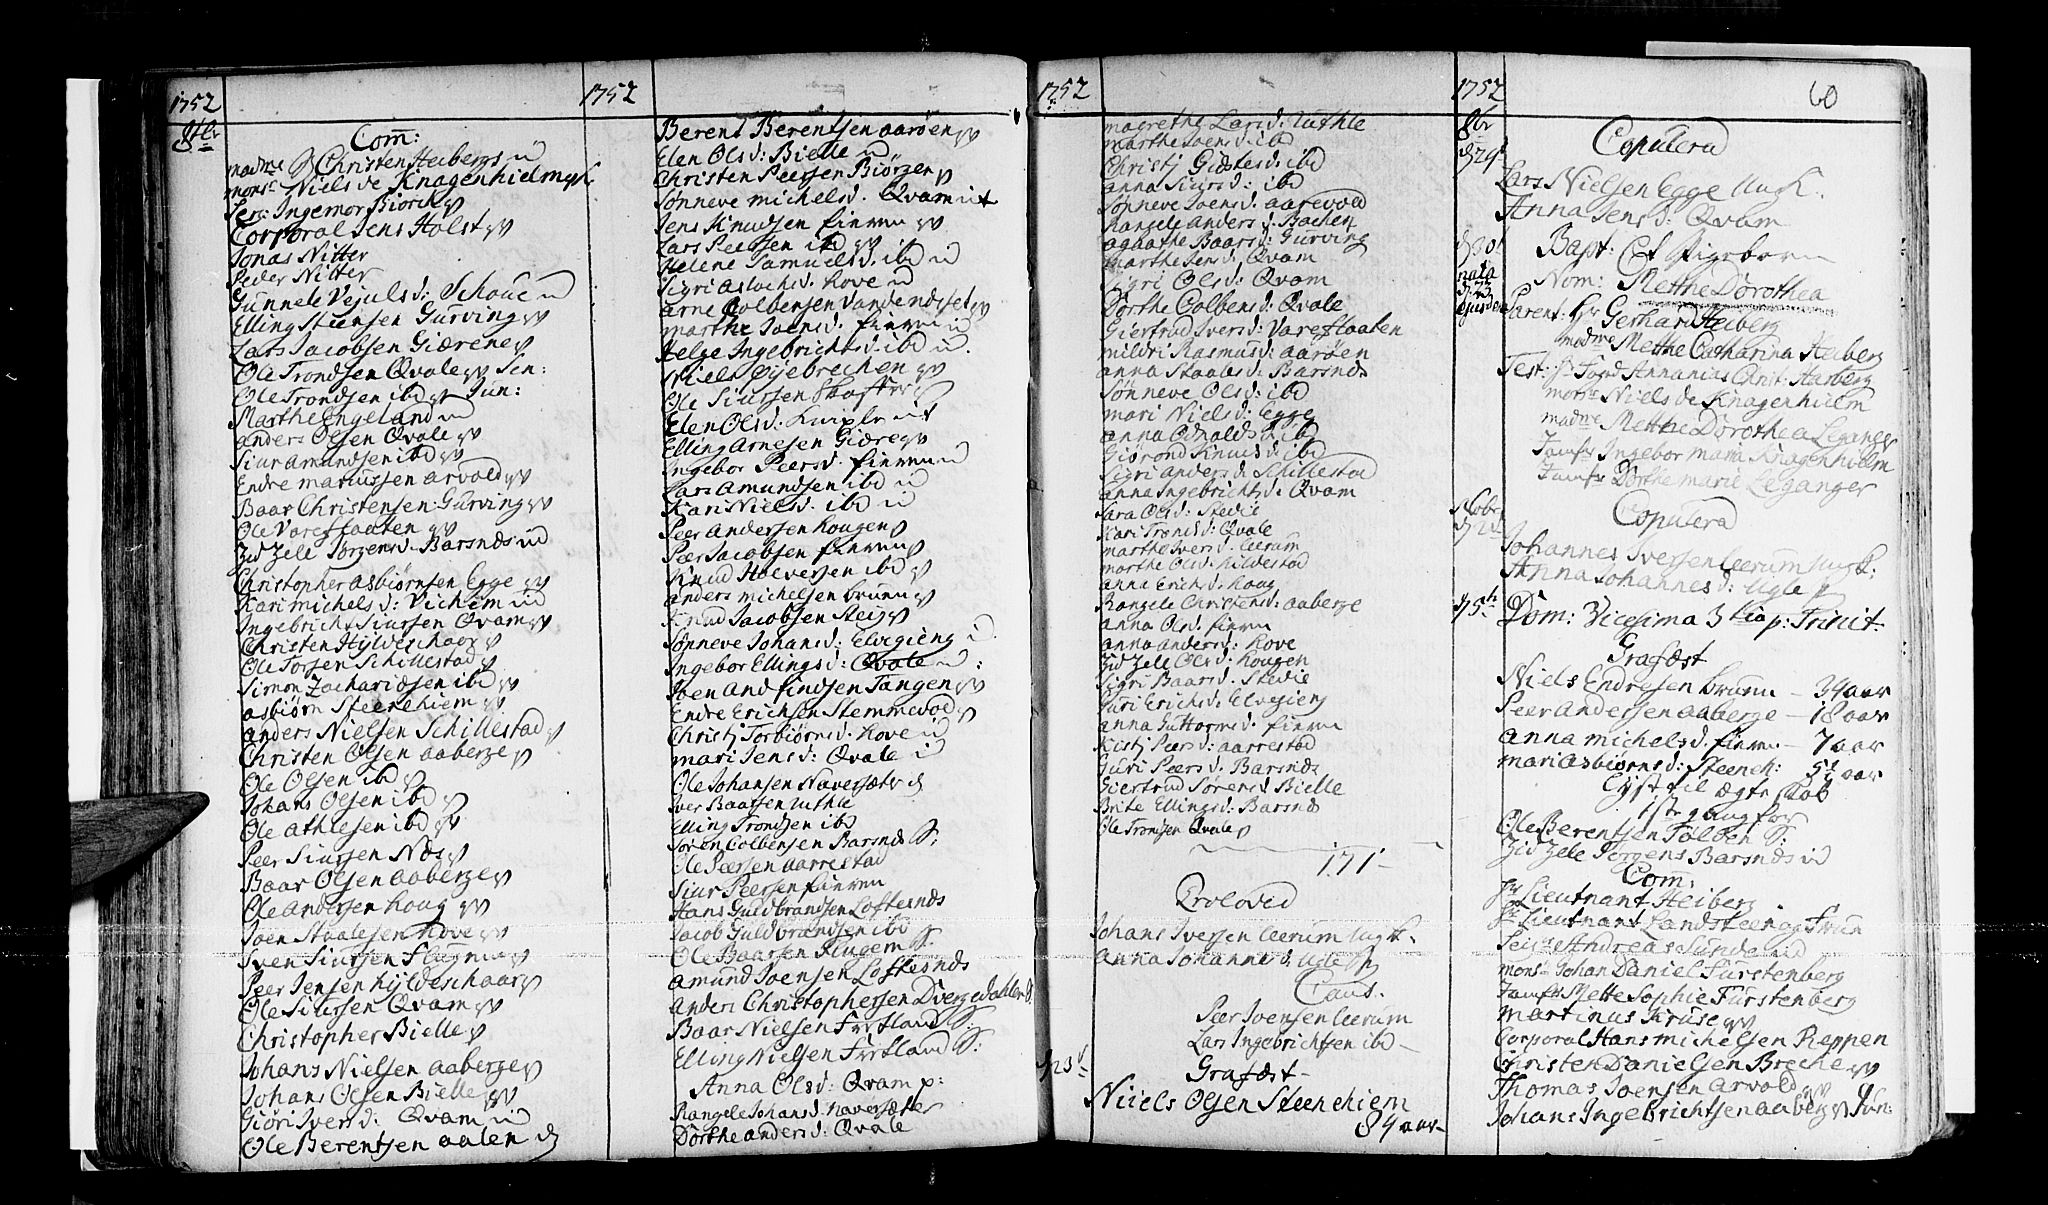 1752
8br
Com:
madme Sl Christen Heibergs
monsr Niels de Knagenhielm
Serg: Ingemor Biorch
Corporal Jens Holst
Jonas Nitter
Peder Nitter
Gunnele Vejulsd. Schoue
Elling Steensen Gurving
Lars Jacobsen Giærene
Ole Trondsen Qvale Sen:
Ole Trondsen ibd Jun:
Marthe Engeland
anders Olsen Qvale
Siur Amundsen ibd
Endre mariussen arvold
Baar Christensen Gurving
Ole Vareflaaten
Zidzele Jorgensd. Barsnes
Christopher asbiørnsen Egge
Kari michelsd: Vichem
Ingebricht Siursen Qvam
Christen Hyldeschaar
Ole Torsen Schillestad
Simon Zachariasen ibd
asbiørn Steenehiem
anders Nielsen Schillestad
Christen Olsen aaberge
Ole Olsen ibd
Johans Olsen ibd
Ole athlesen ibd
Peer Siursen Næs
Baar Olsen aaberge
Ole andersen Houg
Joen Staalesen Hove
Sven Siursen Flugem
Peer Jensen Hyldeschaar
Ole Siursen Qvam
Christopher Bielle
Johans Nielsen aaberge
Johans Olsen Bielle
Giøri Iversd: Qvam
Ole Berentsen aalen
1752
Berent Berentsen aarøen
Elen Olsd: Bielle
Christen Peersen Biørgen
Sønneve michelsd. Qvam
Jens Knudsen fieren
Lars Peersen ibd
Helene Samuelsd. ibd
Sigri aslachsd. Hove
arne Colbensen Vandendset
marthe Joensd. fieren
Helge Ingebrichtsd. ibd
Niels Øyebrechen
Ole Siursen Skafter
Elen Olsd: Kuiple
Elling Arnesen Giære
Ingebor Peersd. fieren
Lars amundsen ibd
Kari Nielsd. ibd
Peer andersen Hougen
Peer Jacobsen fieren
Knud Halversen ibd
anders michelsen bruun
Knud Jacobsen Stei
Sønneve Johansd: Elvegieng
Ingebor Ellingsd: Qvale
Joen andfindsen Tangen
Endre Erichsen Stemmevod
Christi Torbiørnsd. Hove
mari Jensd: Qvale
Ole Johansen Naversæter
Iver Baarsen Kuthle
Elling Trondsen ibd
Soren Colbensen Barsnes S:
Ole Peersen aarrestad
Siur Peersen fieren
Hans Guldbrandsen Loftesnes
Jacob Guldbrandsen ibd
Ole Baarsen Flugem S.
amund Joensen Loftesnes
anders Christophersen Dvergedahlen S.
Baar Nielsen Frstland S.
Elling Nielsen Frstland S:
Anna Olsd: Qvam p:
Rangele Johansd: naversæter
Dorthe andersd: Qvale
1752
magrethe Larsd. Kuthle
marthe Joensd: ibd
Christj Giætesd: ibd
anna Siursd: ibd
Sønneve Joensd: aarevold
Rangele andersd. Bachen
agathe Baarsd: Gurving
marthe Jensd. Qvam
Sigri Olsd: Qvam
Dorthe Colbensd: Qvale
Giertrud Iversd: Vareflaaten
mildri Rasmusd: aarøen
anna Staalesd. Barsnes
Sønneve Olsd: ibd
mari Nielsd: Egge
anna Odnaldsd: ibd
Giørond Knudsd: ibd
Sigri andersd. Schillestad
anna Ingebrichtsd: Qvam
Sara Olsd: Stedie
Kari Trondsd: Qvale
marthe Iversd: Leerum
marthe Olsd: Kildestad
anna Erichsd: Houg
Rangele Christensd: aaberge
anna Olsd: fieren
anna andersd: Hove
Zidzele Olsd: Hougen
Sigri Baarsd: Stedie
Guri Erichsd: Elvegieng
anna Guttormsd: fieren
Kistj Peersd: aarrestad
Guri Peersd: Barsnes
Giertrud Sørensd: Bielle
Brite Ellingsd: Barsnes
Ole Trondsen Qvale
171
Troloved
Johans Iversen Leerum Ungk.
anna Johannesd: Ugle P
Caut.
Peer Ivensen Leerum
Lars Ingebrichtsen ibd
d 23d
Grafæst
Niels Olsen Steenehiem
84 aar
1752
60
8br
d 29d
Copulera
Lars Nielsen Egge Ungk.
Anna Jensd: Qvam
d 30t
Bapt: Et Pigebarn
nata
d 23
ejusdem
Nom: Mette Dorothea
Parent: Hr Gerhard Heiberg
madme Mette Catharina Heiberg
Test: Hr Fogd Annanias Christ: Harberg
monsr Niels de Knagenhielm
madme Mette Dorothea Leganger
Jomfr Ingebor maria Knagenhielm
Jomfr Dorthe marie Leganger
Nobr
d 2d
Copulera
Johannes Iversen Leerum Ungk:
Anna Johannesd: Ugle P
d 5th
Dom: Vicesima 3tia p: Trinit:
Grafæst
Niels Endresen bruun — 34 aar
Peer Andersen aaberge — 18 aar
anna michelsd. fieren — 7 aar
mari asbiørnsd: Steeneh: 5½ aar
Lyst til ægteskab
1ste gang for
Ole Berentsen Folben S:
Zidzele Jorgens Barsnes
Com:
Hr Lieutnant Heiberg
Hr Lieutnant Landsteen og Frue
Seigr Andreas Sunde
monsr Johan Daniel Fürstenberg
Jomfr Mette Sophie Fürstenberg
Martinus Kruse
Corporal Hans michelsen Reppen
Christen Danielsen Breche
Thomas Joensen arvold
Johans Ingebrichtsen aaberg Jun: